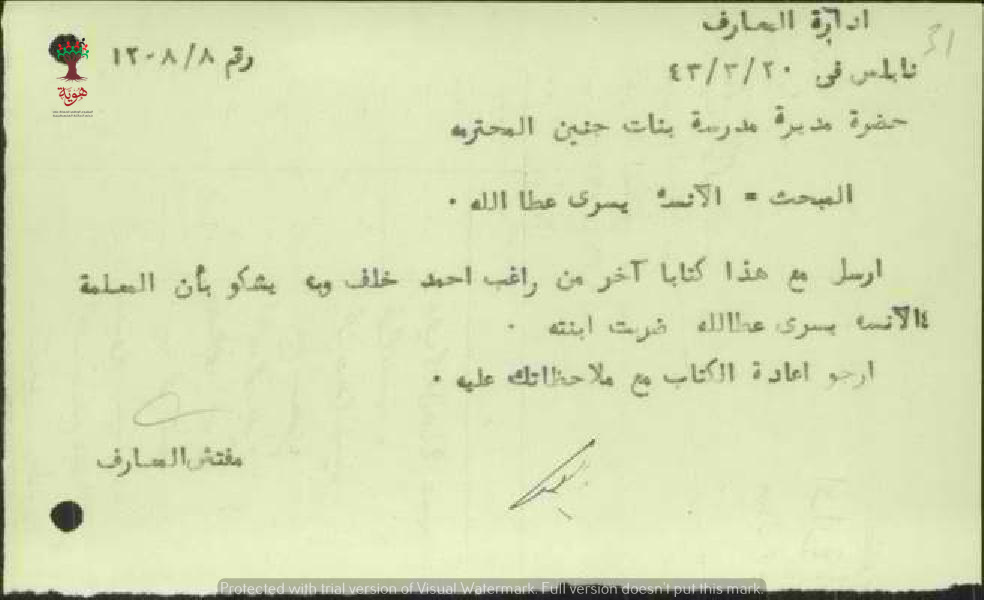 ادارة المعارف
31
رقم ١٢٠٨/٨
نابلس في ٤٣/٣/٢٠
هوية
حضرة مديرة مدرسة بنات جنين المحترمه
المبحث = الآنسه يسرى عطا الله .
ارسل مع هذا كتابا آخر من راغب احمد خلف وبه يشكو بأن المعلمة
الآنسه يسرى عطالله ضربت ابنته .
ارجو اعادة الكتاب مع ملاحظاتك عليه .
مفتش المعارف
Protected with trial version of Visual Watermark. Full version doesn't put this mark.